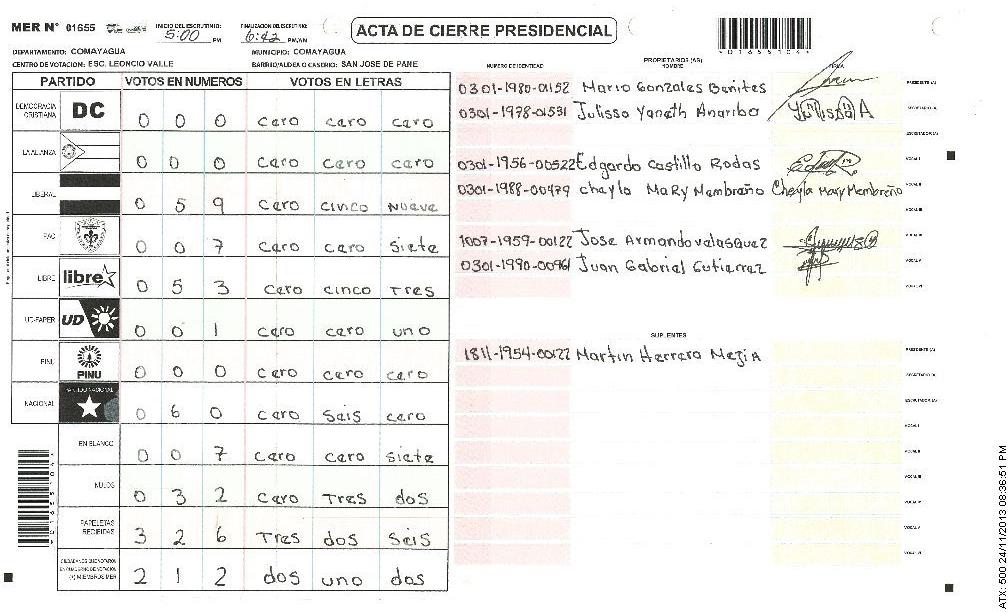 MER N° 01655 INICIO DEL ESCRUTINIO: 5:00 PM FINALIZACION ESCRUTINIO: 6:42 PM/AN ACTA DE CIERRE PRESIDENCIAL
DEPARTAMENTO: COMAYAGUA MUNICIPIO: COMAYAGUA
CENTRO DE VOTACION: ESC. LEONCIO VALLE BARRIO/ALDEA O CASERIO: SAN JOSE DE PANE
PARTIDO VOTOS EN NUMEROS VOTOS EN LETRAS
DEMOCRACIA CRISTIANA DC 0 0 0 cero cero cero
LA ALIANZA 0 0 0 cero cero cero
LIBERAL 0 5 9 cero cinco nueve
PAC 0 0 7 cero cero siete
LIBRE libre 0 5 3 cero cinco Tres
UD-FAPER UD 0 0 1 cero cero uno
PINU PINU 0 0 0 cero cero cero
NACIONAL PARTIDO NACIONAL 0 6 0 cero seis cero
EN BLANCO 0 0 7 cero cero siete
NULOS 0 3 2 cero Tres dos
PAPELETAS RECIBIDAS 3 2 6 Tres dos seis
(+) MIEMBROS MER 2 1 2 dos uno dos
NUMERO DE IDENTIDAD PROPIETARIOS (AS) NOMBRE FIRMA
0301-1980-01152 Mario Gonzales Benites PRESIDENTE (A)
0301-1978-01531 Julissa Yaneth Anaribo SECRETARIO (A)
ESCRUTADOR (A)
0301-1956-00522 Edgardo Castillo Rodas VOCAL I
0301-1988-00479 cheyla MaRy Membreño Cheyla Mary Membreño VOCAL II
VOCAL III
1007-1959-00122 Jose Armando velasquez VOCAL IV
0301-1990-00961 Juan Gabriel Gutierrez VOCAL V
SUPLENTES
1811-1954-00122 Martin Herrera Mejia PRESIDENTE (A)
SECRETARIO (A)
ESCRUTADOR (A)
VOCAL I
VOCAL II
VOCAL III
VOCAL IV
VOCAL V
VOCAL VI
ATX: 500 24/11/2013 08:36:51 PM